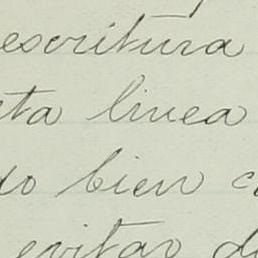 escritura
ta linea
do bien c
evitar d